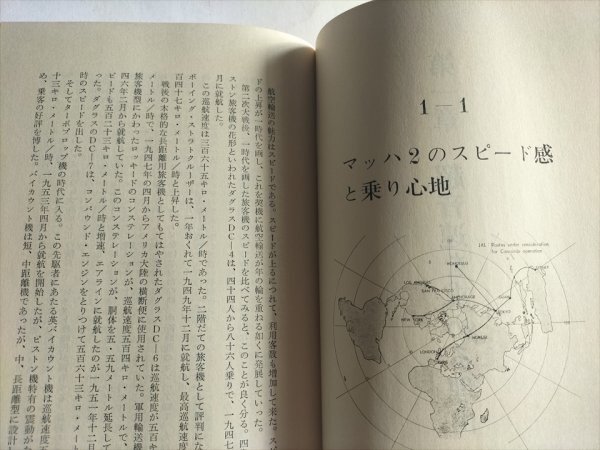 1―1
マッハ2のスピード感
と乗り心地
JAL Routes under consideration
for Concorde operation
HONOLULU
LOS ANGELES
SAN FRANCISCO
NEW YORK
LONDON
航空輸送の魅力はスピードである。スピードが上るにつれて、利用客数も増加して来た。スピ
ドの上昇が一時代を画し、これを契機に航空輸送が年の輪を重ねる如くに発展していった。
第二次大戦後、一時代を画した旅客機のスピードを比べてみると、このことが良く分る。四
ストン旅客機の花形といわれたダグラスDC―4は、四十四人から八十六人乗りで、一九四七
月に就航した。
この巡航速度は三百六十五キロ・メートル／時であった。二階だての旅客機として評判にな
ボーイング・ストラトクルーザーは、一年おくれて一九四九年十二月に就航し、最高巡航速
百四十七キロ・メートル／時と上昇した。
戦後の本格的な長距離用旅客機としてもてはやされたダグラスDC―6は巡航速度が五百キ
メートル／時で、一九四七年の四月からアメリカ大陸の横断便に使用されていた。軍用輸送機
旅客機型にかわったロッキードのコンステレーションが、巡航速度五百四キロ・メートルで、
四六年二月から就航していた。このコンステレーションが、胴体を五・五九メートル延長して
ピードも五百二十三キロ・メートル／時と増速、エアラインに就航したのが一九五一年十二月
った。ダグラスのDC―7は、コンパウンド・エンジンをとりつけて五百六十三キロ・メー
時のスピードを出した。
そしてターボプロップ機の時代に入る。この先駆者にあたる英バイカウント機は、
十三キロ・メートル／時、一九五三年四月から就航を開始したが、ピストン機特有の震動が
め、乗客の好評を博した。バイカウント機は短、中距離機であったが、中、長距離型に設計